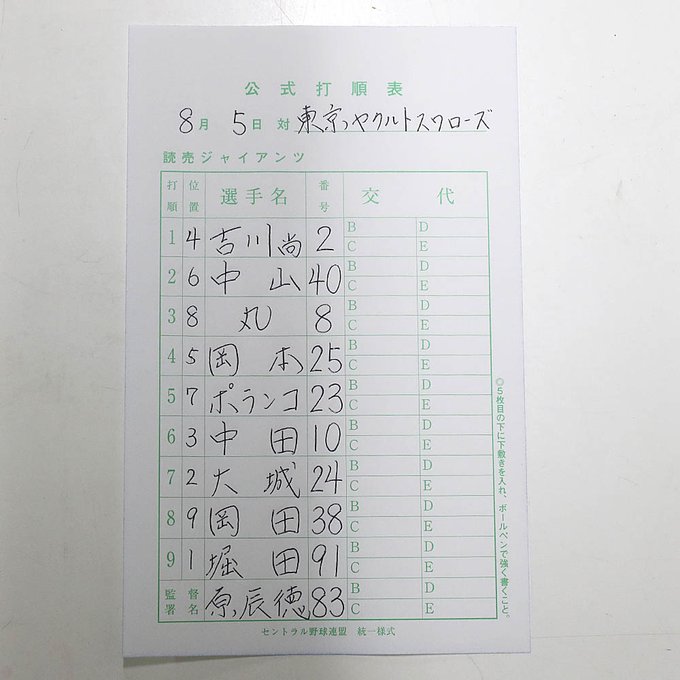 公式打順表
8月 5日 対 東京ヤクルトスワローズ
読売ジャイアンツ
打順 位置 選手名 番号 交代
1 4 吉川尚 2 B D
C E
2 6 中山 40 B D
C E
3 8 丸 8 B D
C E
4 5 岡本 25 B D
C E
5 7 ポランコ 23 B D
C E
6 3 中田 10 B D
C E
7 2 大城 24 B D
C E
8 9 岡田 38 B D
C E
9 1 堀田 91 B D
C E
監督署名 原辰徳 83 B D
C E
◎5枚目の下に下敷きを入れ、ボールペンで強く書くこと。
セントラル野球連盟 統一様式